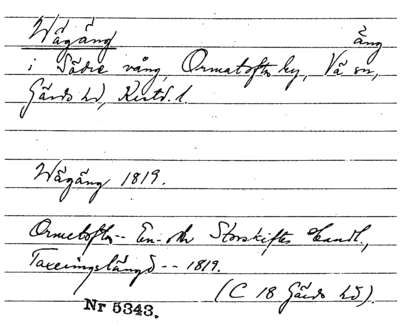 Wägäng äng
i Södre vång, Ormatofta by, Vä sn,
Gärds hd, Krstd. l.
Wägäng 1819.
Ormetofta -- En- och Storskiftes Handl.,
Taxeringslängd -- 1819.
(C 18 Gärds hd).
Nr 5343.